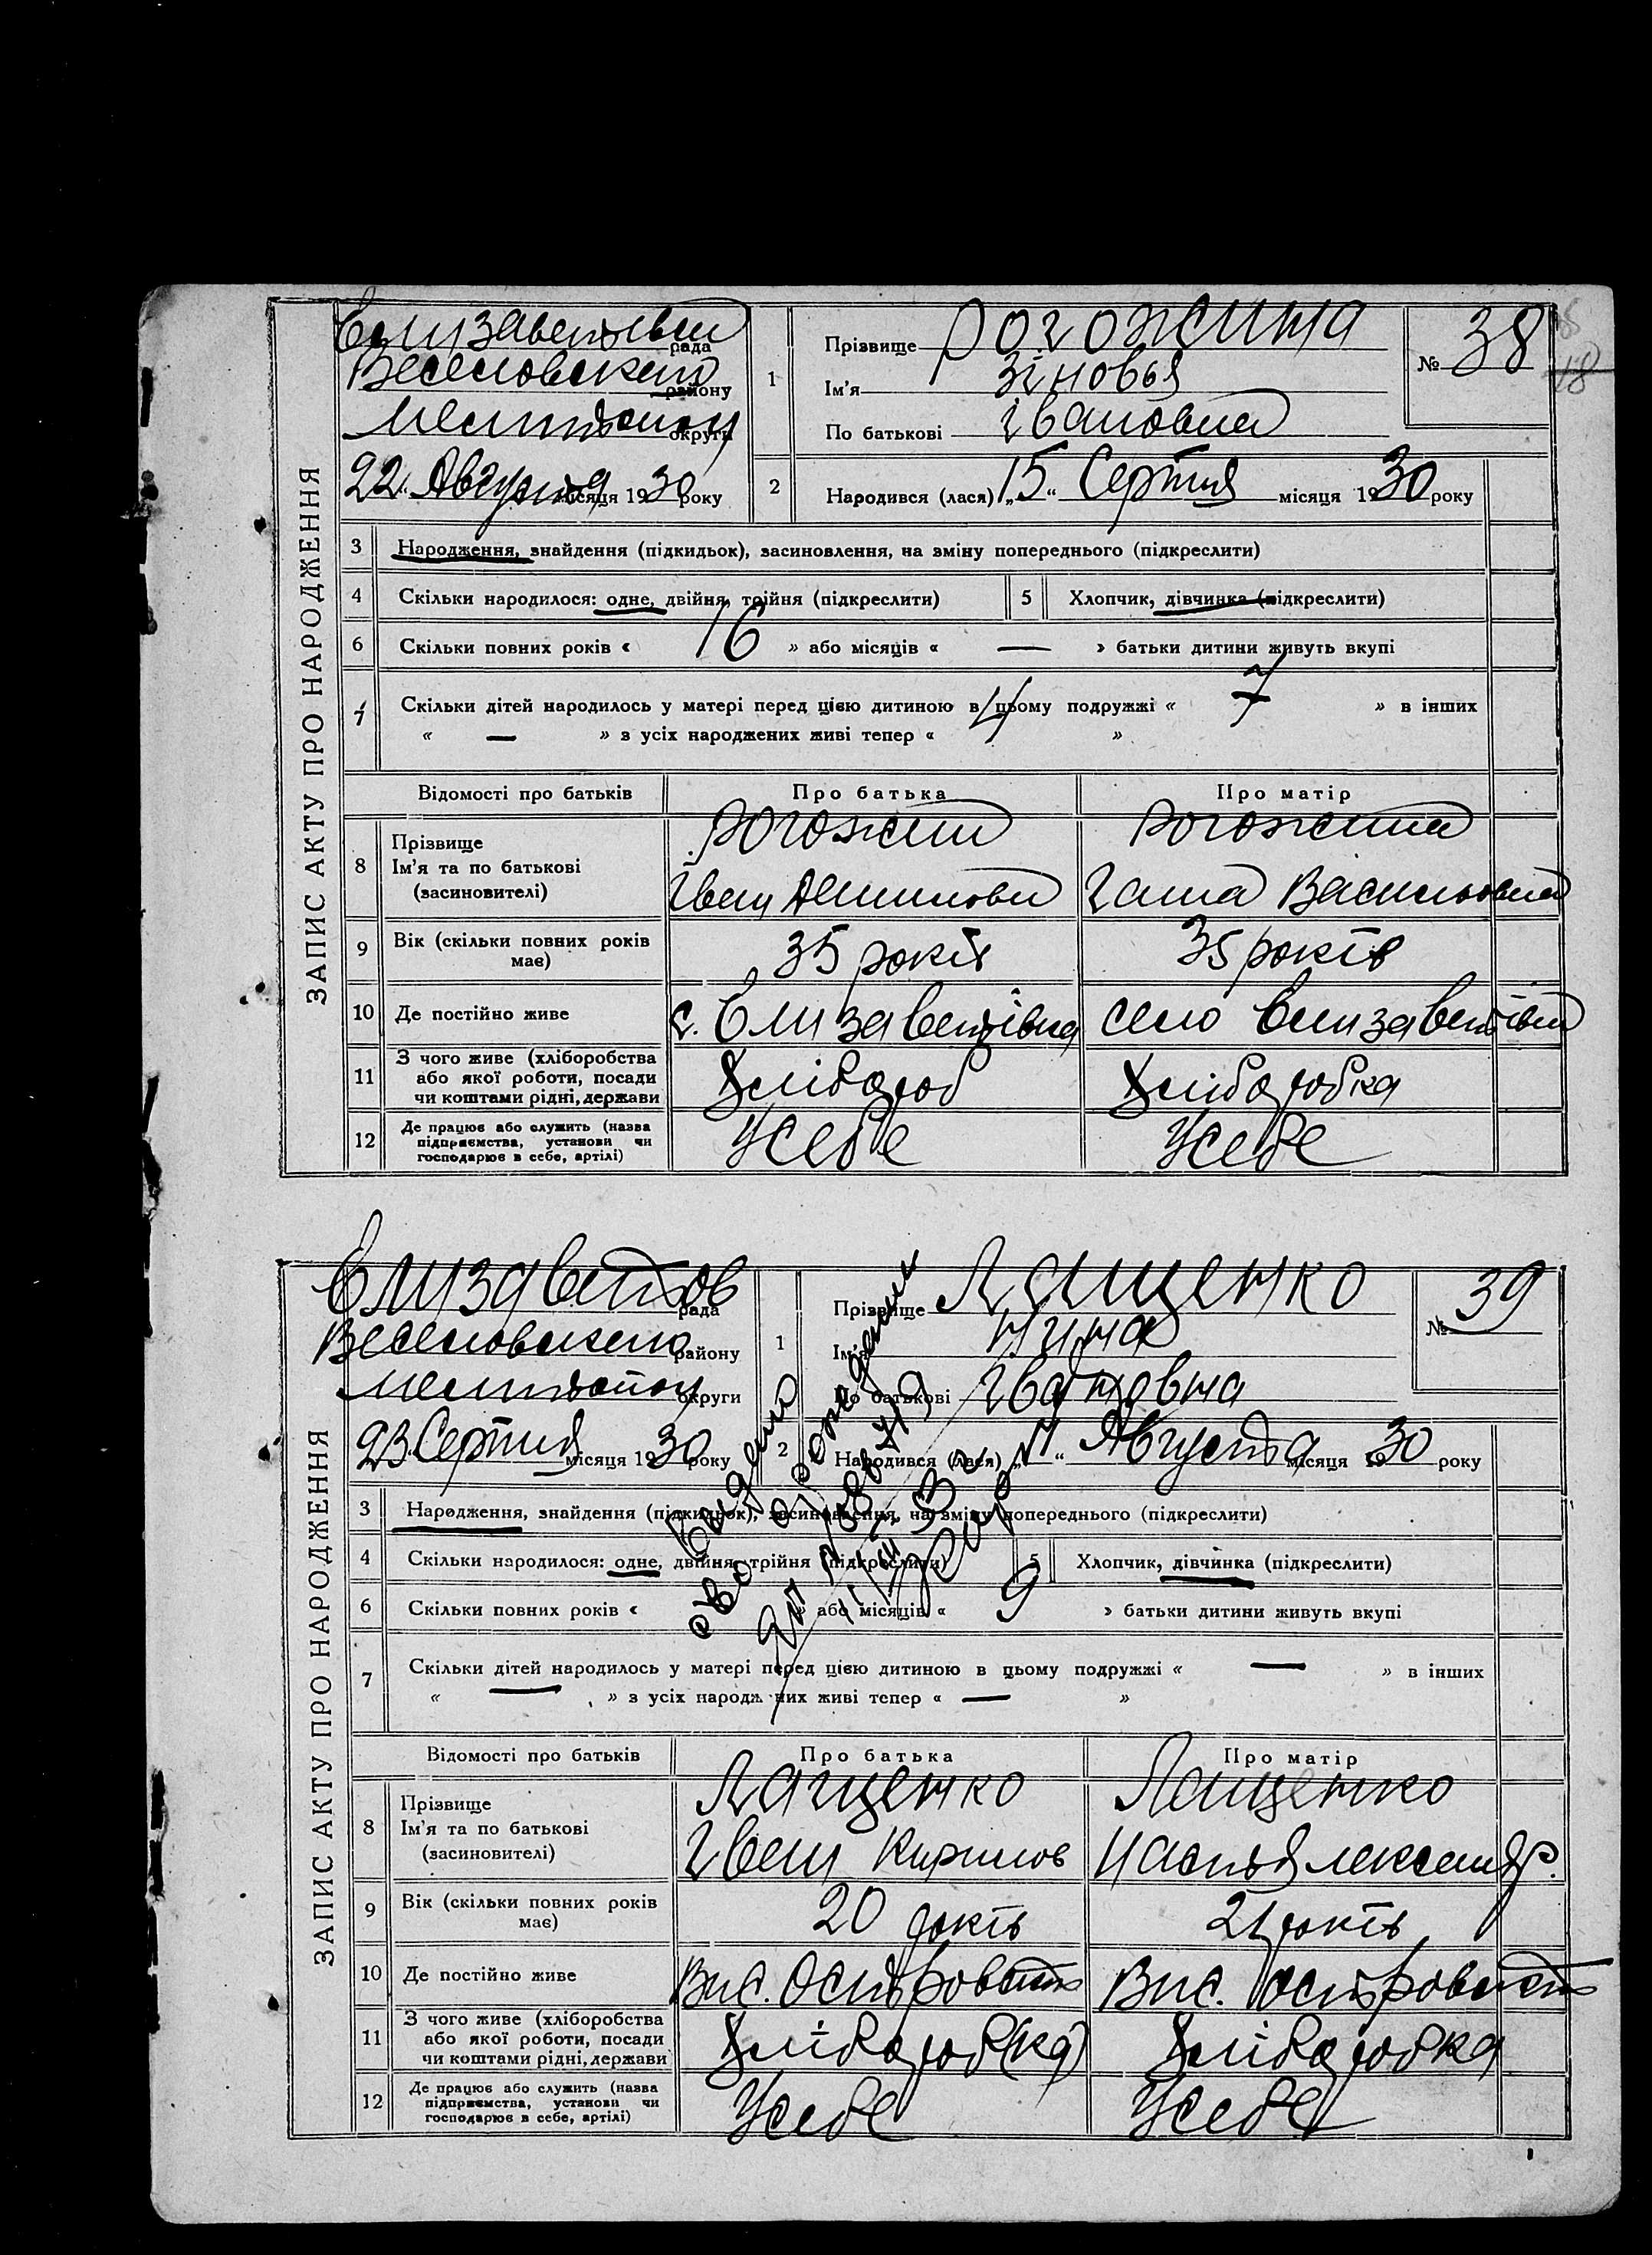 ЗАПИС АКТУ ПРО НАРОДЖЕННЯ
Елизаветівка рада
Веселовского району
Мелитопол округи
22 „ Августа місяця 1930 року
1
Прізвище Рогожина
Ім'я Зіновья
По батькові Івановна
№ 38
18
2
Народився (лася) „15“ Серпня місяця 1930 року
3 Народження, знайдення (підкидьок), засиновлення, на зміну попереднього (підкреслити)
4 Скільки народилося: одне, двійня, трійня (підкреслити) 5 Хлопчик, дівчинка (підкреслити)
6 Скільки повних років « 16 » або місяців « — » батьки дитини живуть вкупі
7 Скільки дітей народилось у матері перед цією дитиною в цьому подружжі « 7 » в інших
« — » з усіх народжених живі тепер « 4 »
Відомості про батьків Про батька Про матір
8 Прізвище Рогожин Рогожина
Ім'я та по батькові Іван Васильовна
(засиновителі)
9 Вік (скільки повних років має) 35 років 35 років
10 Де постійно живе с. Елизаветівка село Елизаветівка
11 З чого живе (хліборобства або якої роботи, посади чи коштами рідні, держави Хлібороб Хліборобка
12 Де працює або служить (назва підприємства, установи чи господарює в себе, артілі) У себе У себе
ЗАПИС АКТУ ПРО НАРОДЖЕННЯ
Елизаветов рада
Веселовского району
Мелитопол округи
23 Серпня місяця 1930 року
1
Прізвище Лащенко
Ім'я Нина
По батькові Івановна
№ 39
2
Народився (лася) „ “ Августа місяця 1930 року
Выдано
св о рождении
3 Народження, знайдення (підкидьок), засиновлення, на зміну попереднього (підкреслити)
4 Скільки народилося: одне, двійня, трійня (підкреслити) 5 Хлопчик, дівчинка (підкреслити)
6 Скільки повних років « » або місяців « 9 » батьки дитини живуть вкупі
7 Скільки дітей народилось у матері перед цією дитиною в цьому подружжі « — » в інших
« — » з усіх народжених живі тепер « — »
Відомості про батьків Про батька Про матір
8 Прізвище Лащенко Лащенко
Ім'я та по батькові Іван Кирилов Настя Александр.
(засиновителі)
9 Вік (скільки повних років має) 20 років 21 років
10 Де постійно живе Вис. Вис.
11 З чого живе (хліборобства або якої роботи, посади чи коштами рідні, держави Хлібороб(ка) Хліборобка
12 Де працює або служить (назва підприємства, установи чи господарює в себе, артілі) У себе У себе